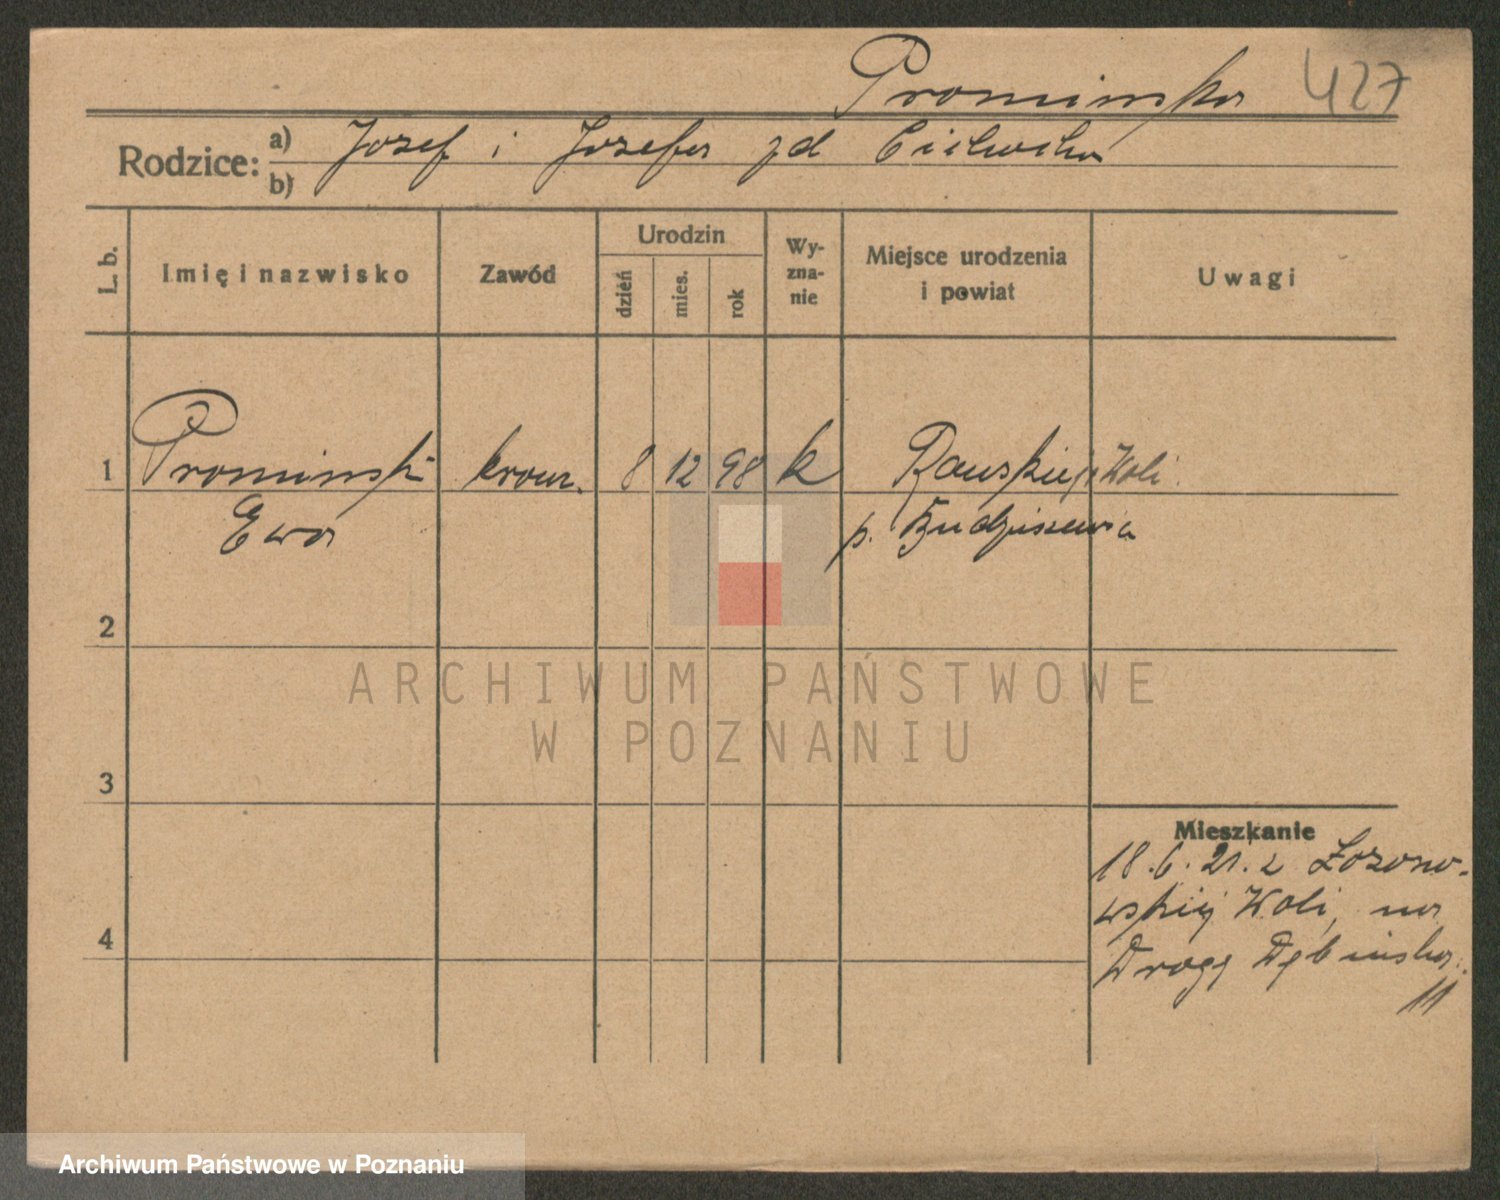 Prominska 427
Rodzice: a) Józef i Józefa zd
b)
L. b.
Imię i nazwisko
Zawód
Urodzin
dzień
mies.
rok
Wy-
zna-
nie
Miejsce urodzenia
i powiat
Uwagi
1 Prominska kraw. 8 12 98 k Rawskiej Woli
Ewa p. Budziszewice
2
3
4
Mieszkanie
18.6.21. z
wskiej Woli, na
Drogę Dębińską
11
ARCHIWUM PAŃSTWOWE
W POZNANIU
Archiwum Państwowe w Poznaniu